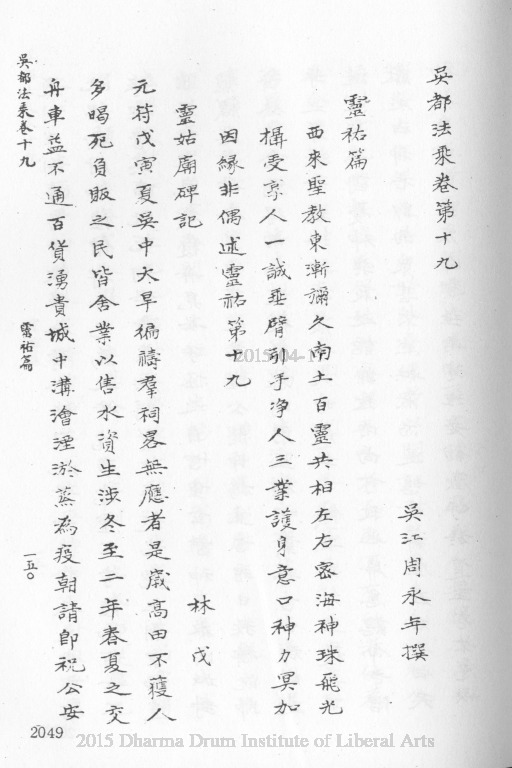 吳都法乘卷第十九
吳江周永年撰
靈祐篇
西來聖教東漸彌久南土百靈共相左右密海神珠飛光
攝受享人一誠垂臂引手淨人三業護身意口神力冥加
因緣非偶述靈祐第十九
靈姑廟碑記
林戊
元符戊寅夏吳中大旱徧禱羣祠畧無應者是歲高田不獲人
多暍死負販之民皆舍業以售水資生涉冬至二年春夏之交
舟車益不通百貨湧貴城中溝澮湮淤蒸為疫朝請郎祝公安
吳都法乘卷十九
靈祐篇
一五〇
2049
2015-04-1
2015 Dharma Drum Institute of Liberal Arts